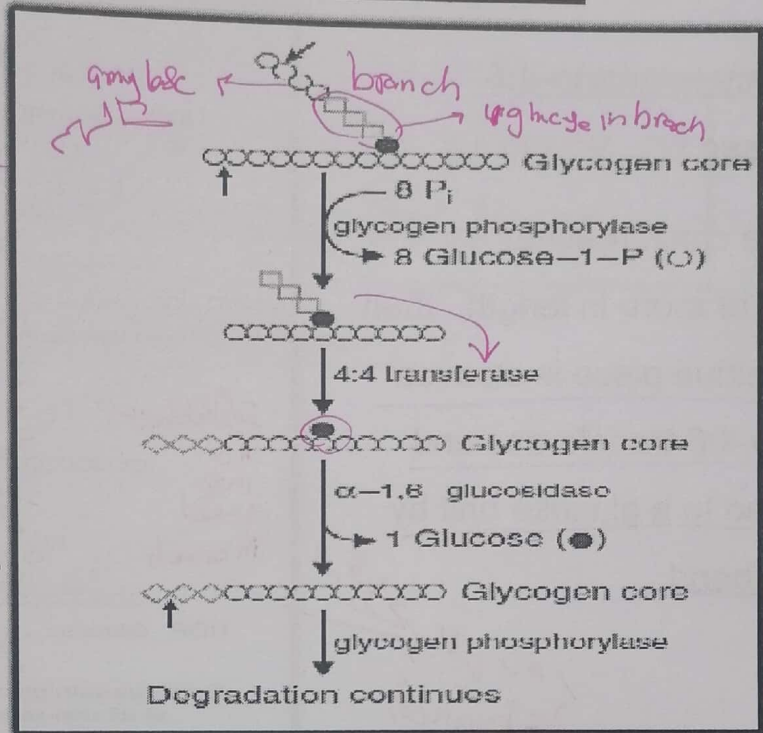 branch
Glycogen core
8 Pi
glycogen phosphorylase
8 Glucose–1–P ( )
4:4 transferase
Glycogen core
α–1,6 glucosidase
1 Glucose ( )
Glycogen core
glycogen phosphorylase
Degradation continues